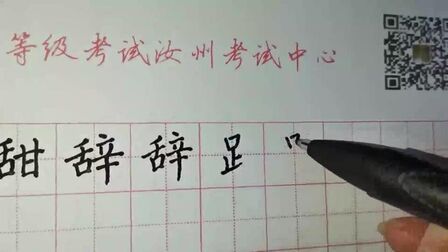 等级考试汝州考试中心
甜辞辞足